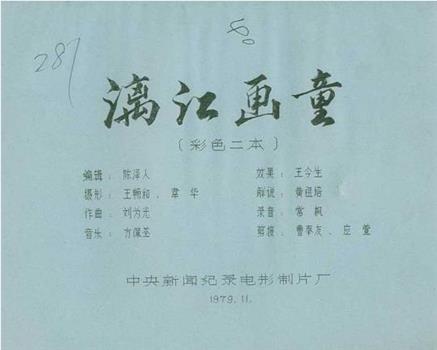 287
漓江画童
(彩色二本)
编辑：陈泽人 效果：王今生
摄影： 韦华 解说：黄纽培
作曲：刘为光 录音：常枫
音乐：方佩圣 剪接：曹奉友、应萱
中央新闻纪录电影制片厂
1979.11.